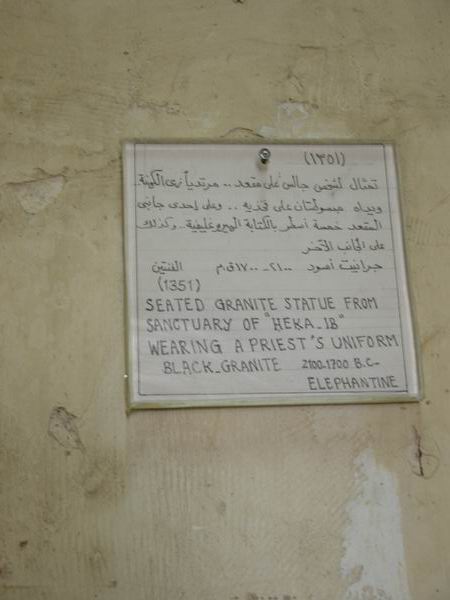 (١٣٥١)
تمثال لشخص جالس على مقعد .. مرتدياً زى الكهنة
ويداه مبسولتان على فخذيه .. وعلى إحدى جانبى
المقعد خمسة أسطر بالكتابة الهيروغليفية .. وكذلك
على الجانب الآخر
جرانيت أسود ٢١٠٠ - ١٧٠٠ ق.م الفنتين
(1351)
SEATED GRANITE STATUE FROM
SANCTUARY OF "HEKA-IB"
WEARING A PRIEST'S UNIFORM
BLACK-GRANITE 2100-1700 B.C-
ELEPHANTINE